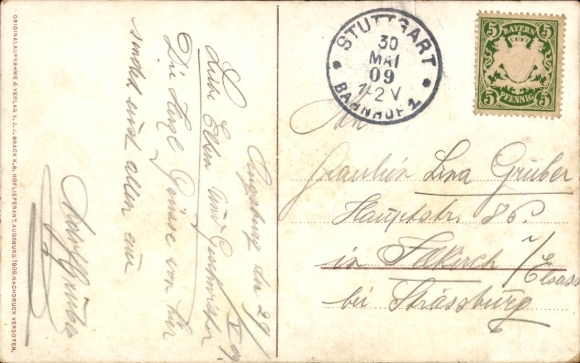 ORIGINALAUFNAHME & VERLAG V. J. BRACK K.B. HOFLIEFERANT AUGSBURG 1908 NACHDRUCK VERBOTEN.
Augsburg den 29/V 09.
Liebe Eltern und Großmutter
Die Grüsse von hier
sendet euch allen
STUTTGART
30
MAI
09
1-2 V
BAHNHOF 1
5 BAYERN 5
5 PFENNIG 5
An
Fräulein Lina Gruber
Hauptstr. 86
in Illkirch i/Elsass
bei Strassburg